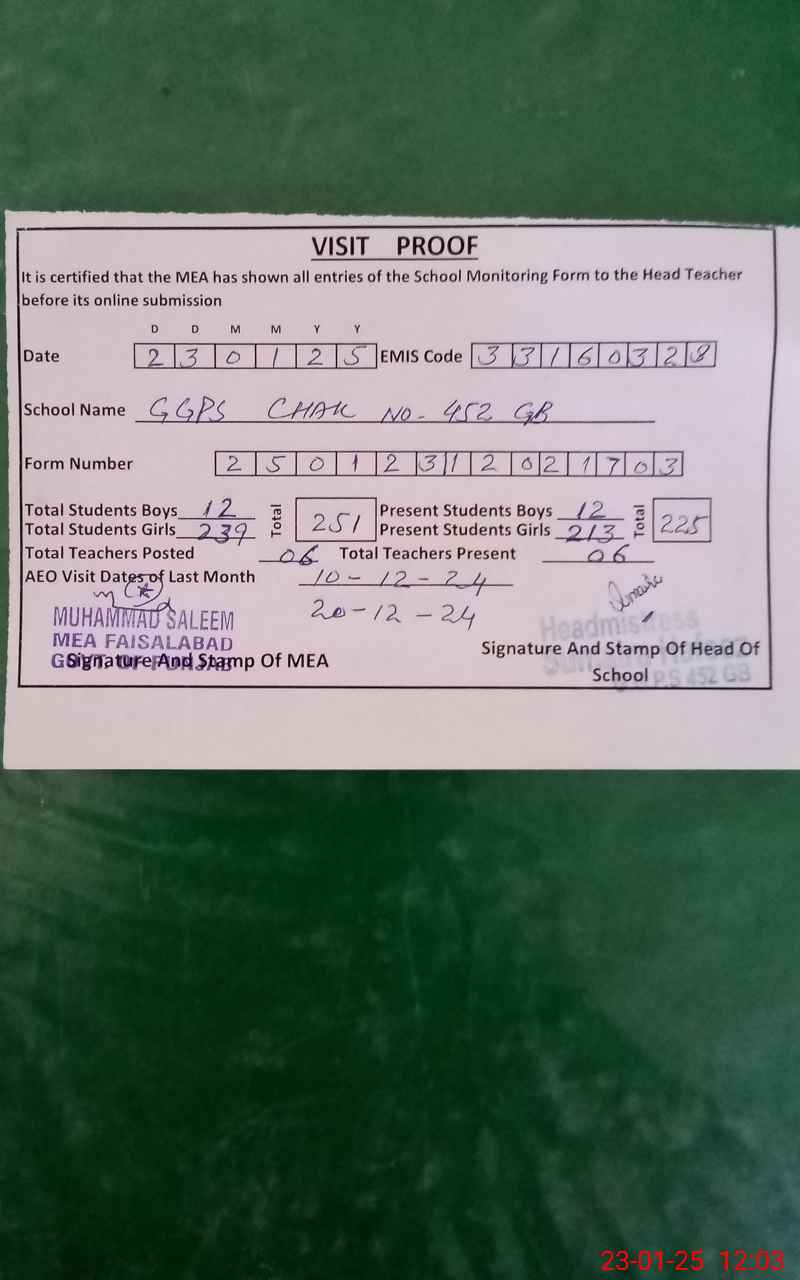 VISIT PROOF
It is certified that the MEA has shown all entries of the School Monitoring Form to the Head Teacher
before its online submission
D D M M Y Y
Date 2 3 0 1 2 5 EMIS Code 3 3 1 6 0 3 2 8
School Name GGPS CHAK NO- 452 GB
Form Number 2 5 0 1 2 3 1 2 0 2 1 7 0 3
Total Students Boys 12 Total 251 Present Students Boys 12 Total 225
Total Students Girls 239 Present Students Girls 213
Total Teachers Posted 06 Total Teachers Present 06
AEO Visit Dates of Last Month 10-12-24
20-12-24
MUHAMMAD SALEEM
MEA FAISALABAD
GOVT. OF PUNJAB
Signature And Stamp Of MEA
Headmistress
Signature And Stamp Of Head Of
School
P.S 452 GB
23-01-25 12:03